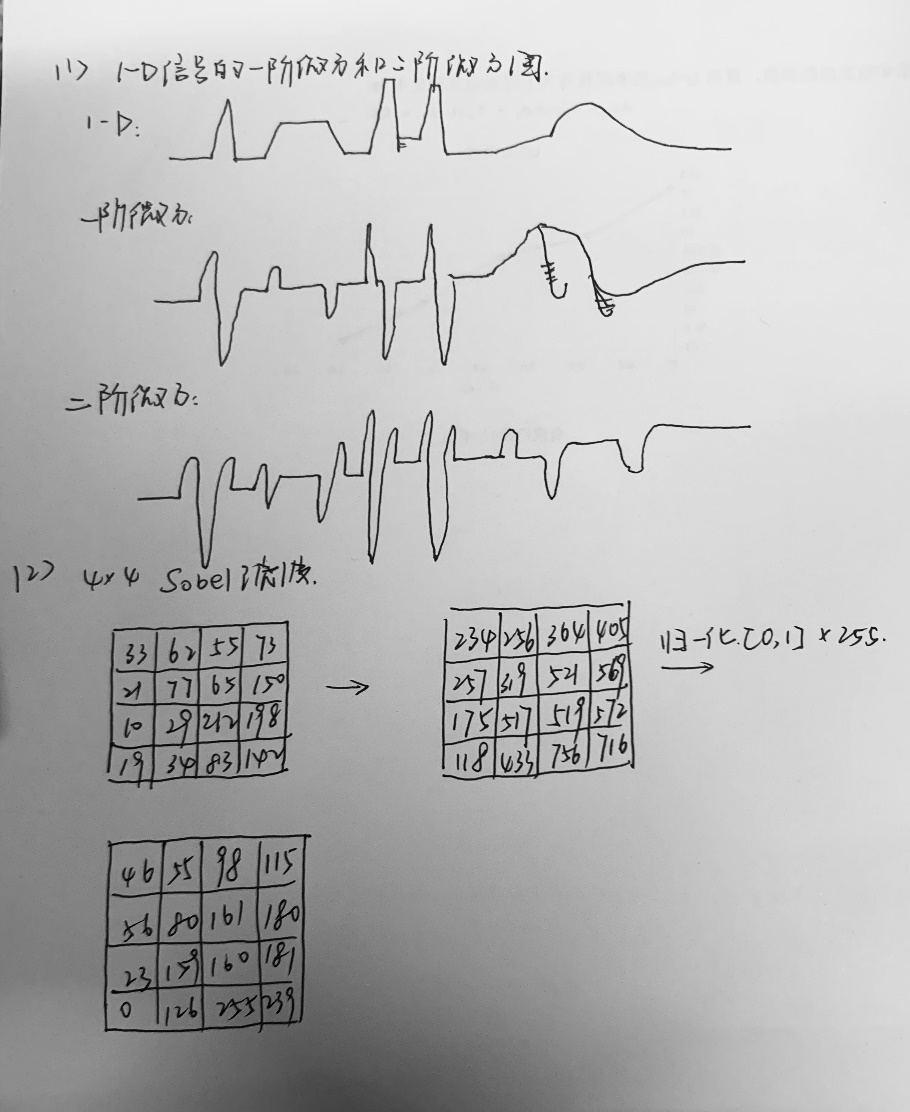 (1) 1-D信号的一阶微分和二阶微分图.
1-D:
一阶微分:
二阶微分:
(2) 4×4 Sobel 滤波.
33 62 55 73
21 77 65 150
10 29 212 198
19 34 83 142
→
234 256 364 405
257 319 521 569
175 517 519 572
118 433 756 716
归一化.[0,1] × 255.
→
46 55 98 115
56 80 161 180
23 159 160 181
0 126 255 239